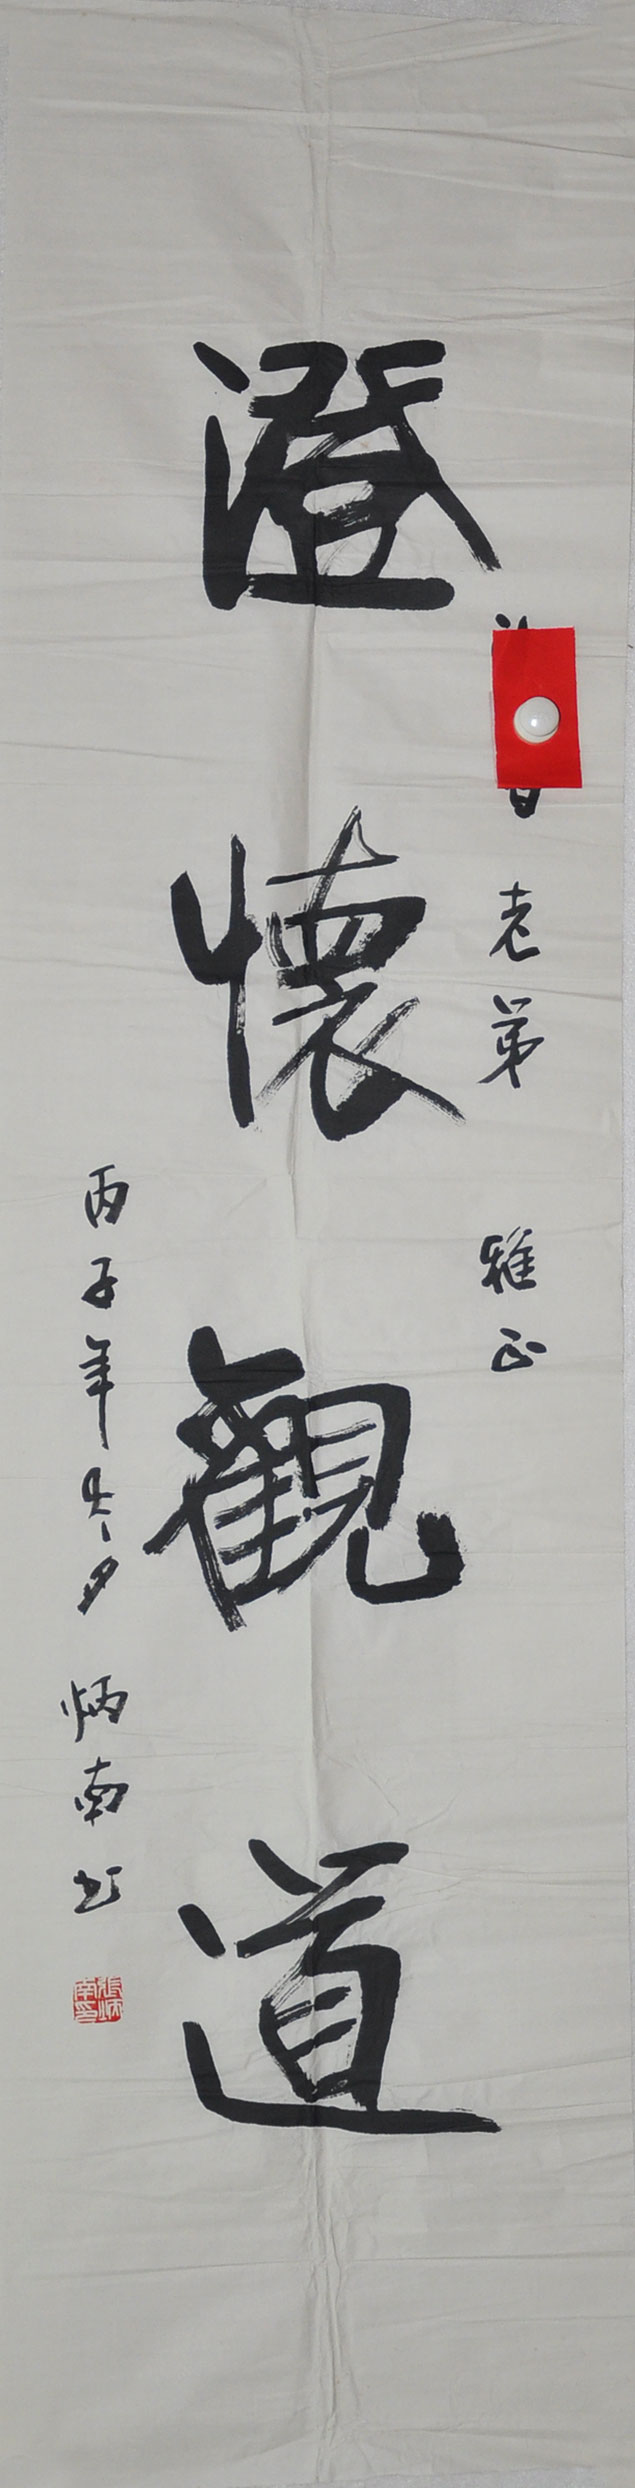 老弟雅正
澄懷觀道
丙子年冬月炳南书
張炳南印